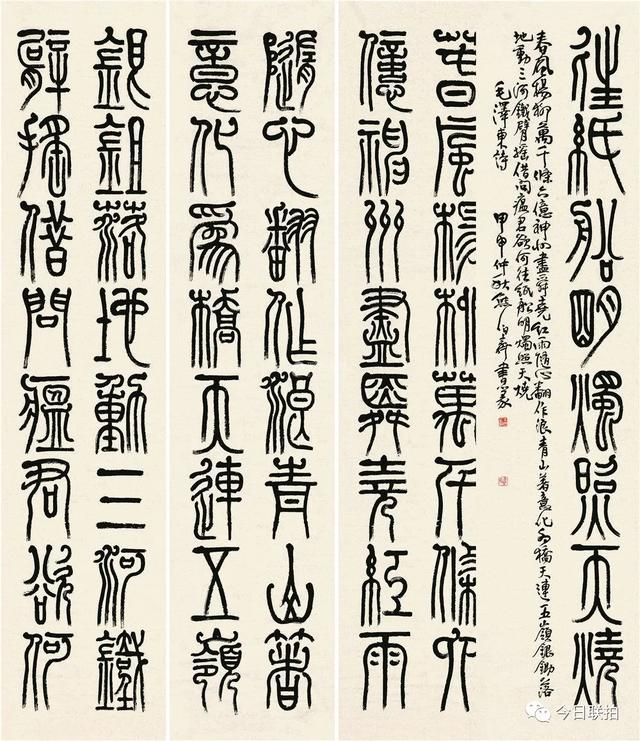 春風楊柳萬千條六
億神州盡舜堯紅雨
隨心翻作浪青山著
意化為橋天連五嶺
銀鉏落地動三河鐵
臂搖借問瘟君欲何
往紙船明燭照天燒
春風楊柳萬千條六億神州盡舜堯紅雨隨心翻作浪青山著意化為橋天連五嶺銀鋤落
地動三河鐵臂搖借問瘟君欲何往紙船明燭照天燒
毛澤東詩 甲申仲秋熊伯齊書篆
今日联拍